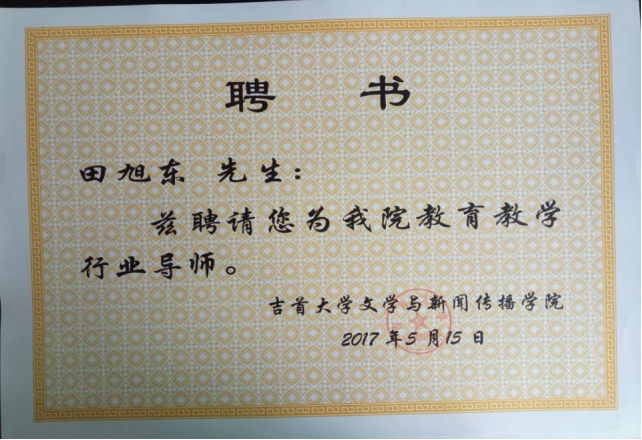 聘 书
田旭东 先生：
兹聘请您为我院教育教学
行业导师。
吉首大学文学与新闻传播学院
2017年5月15日